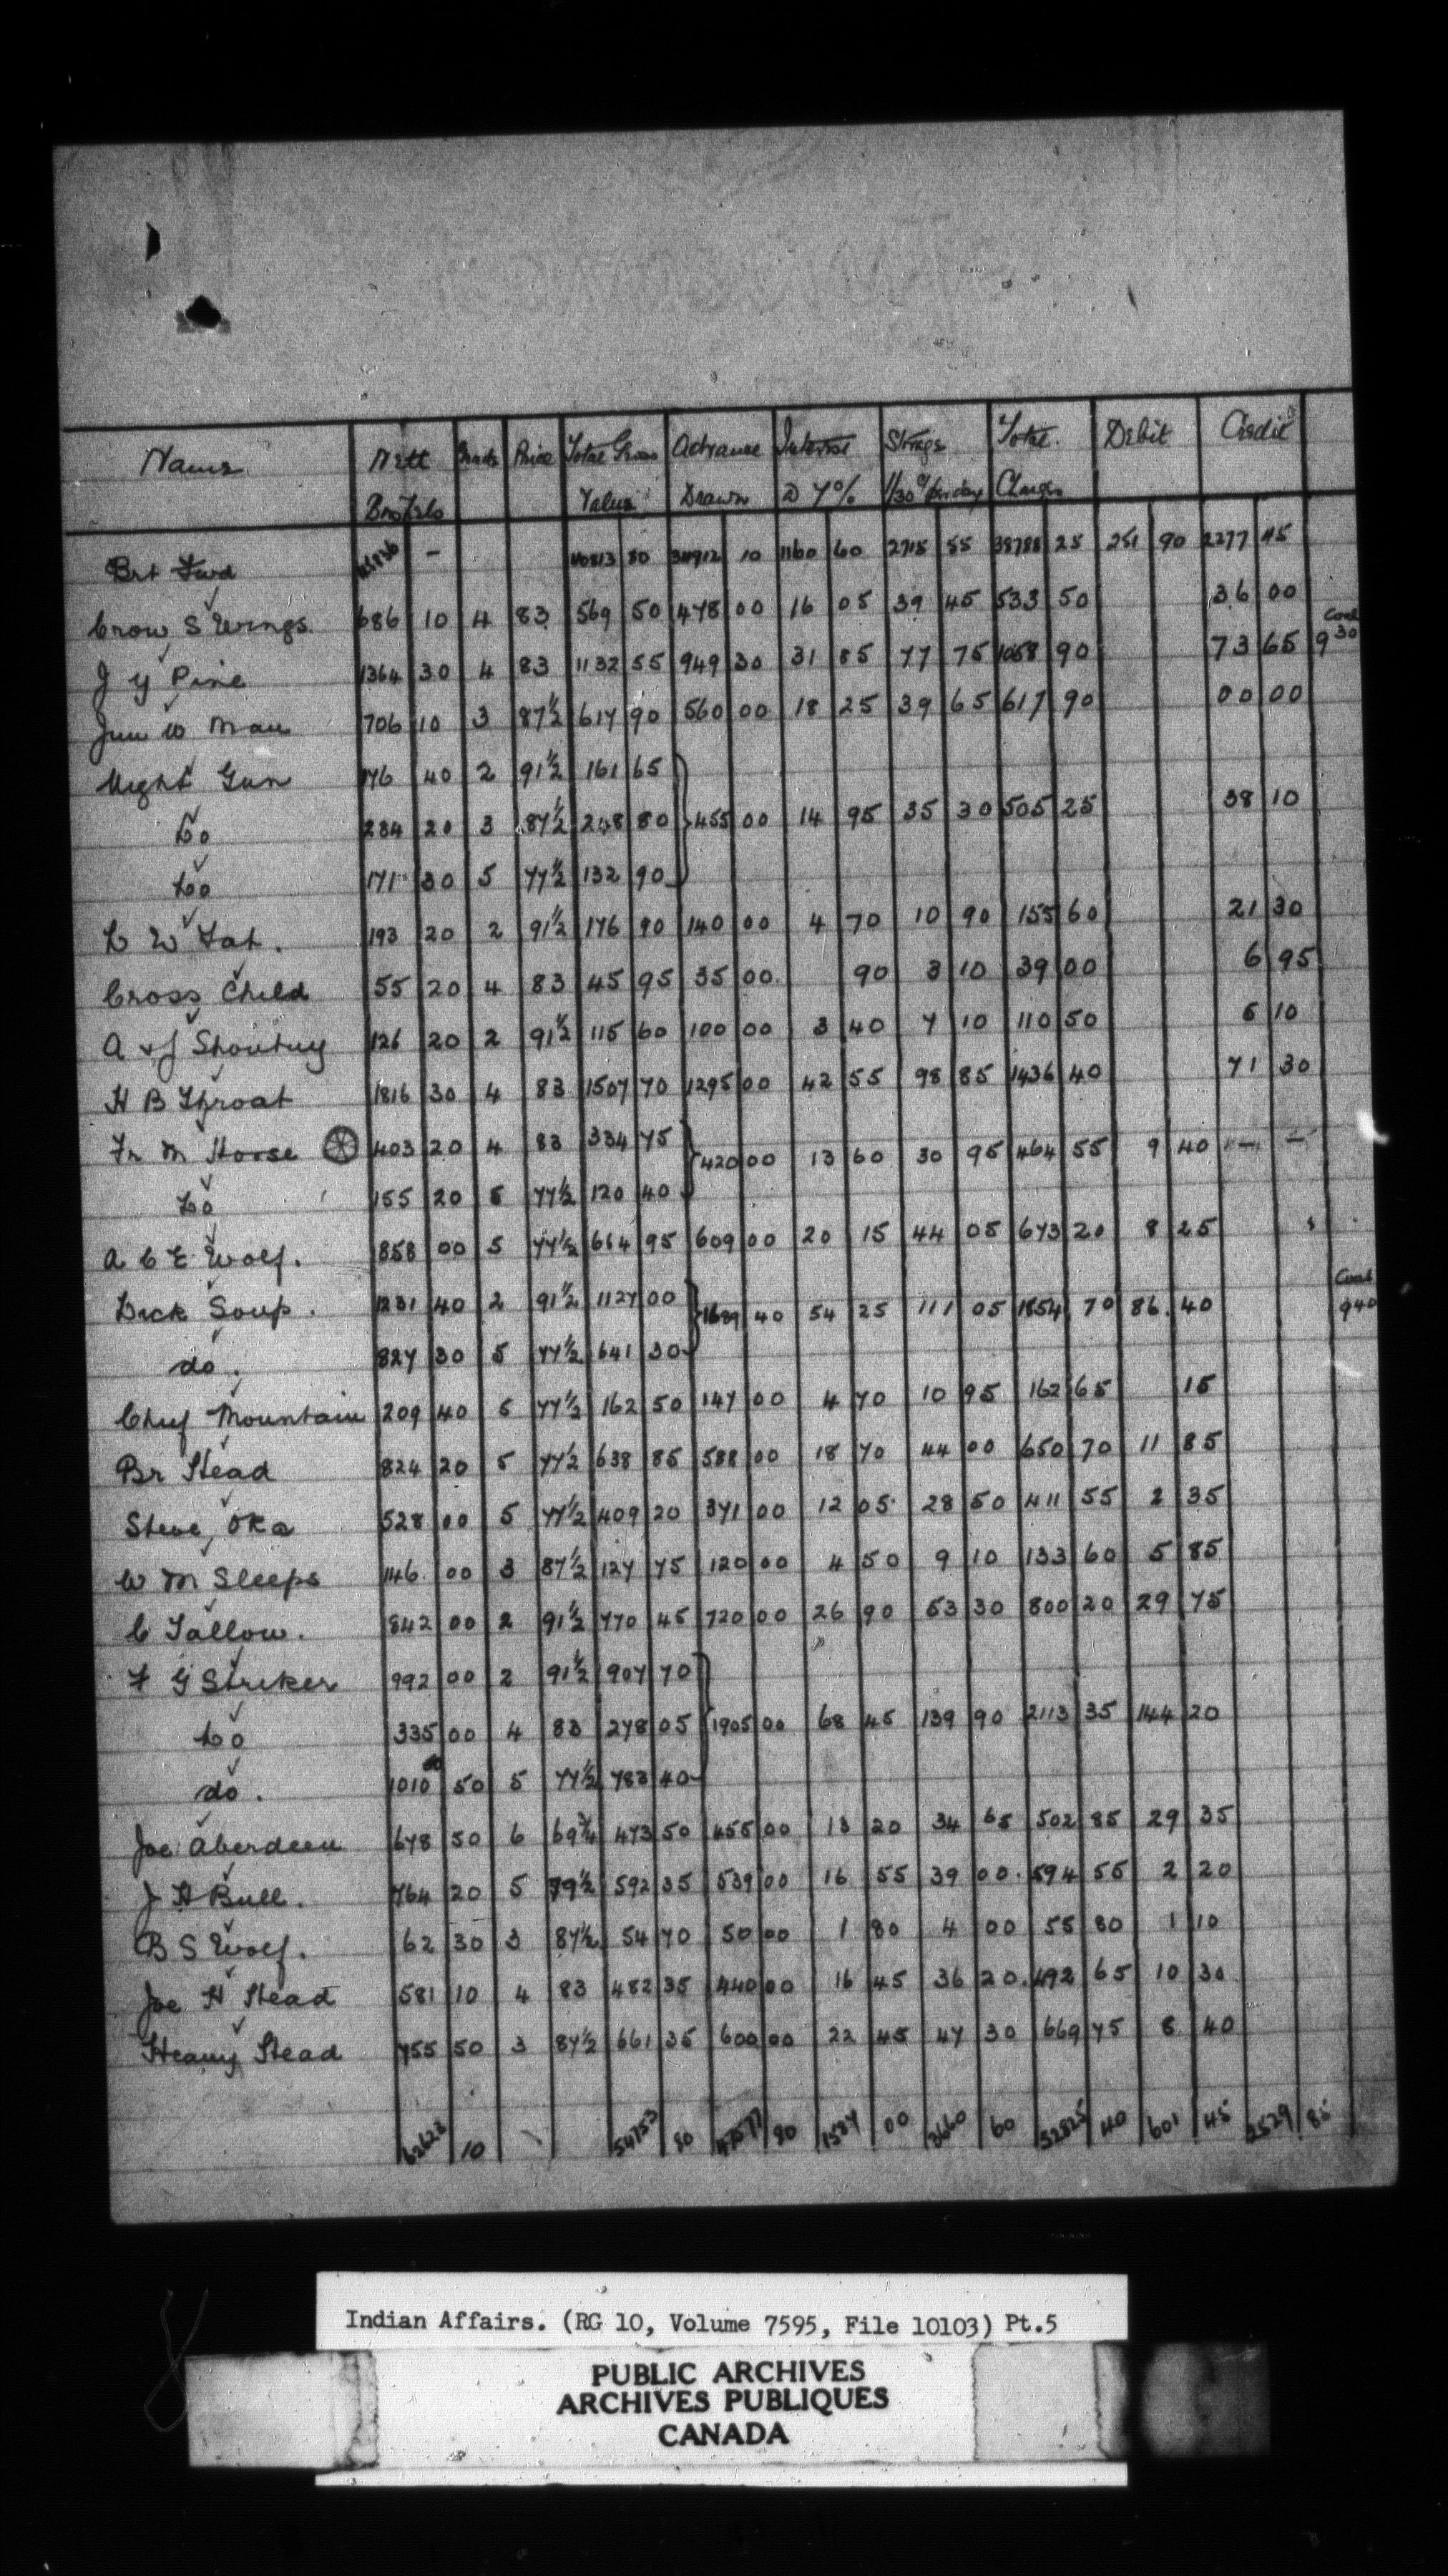 Name Nett Grade Price Total Gross Advance Interest Strage Total Debit Credit
Bus Lbs Value Drawn @ 7% 1/30 ¢ per day Charges
Brt Fwd — 80 10 1160 60 2715 55 38788 25 251 90 2277 45
Crow S Wings 686 10 4 83 569 50 478 00 16 05 39 45 533 50 36 00
Coal
J Y Pine 1364 30 4 83 1132 55 949 30 31 85 77 75 1058 90 73 65 9 30
Jim W Man 706 10 3 87½ 617 90 560 00 18 25 39 65 617 90 00 00
Night Gun 176 40 2 91½ 161 65
Do 284 20 3 87½ 248 80 455 00 14 95 35 30 505 25 38 10
Do 171 30 5 77½ 132 90
D W Fat. 193 20 2 91½ 176 90 140 00 4 70 10 90 155 60 21 30
Cross Child 55 20 4 83 45 95 35 00 90 3 10 39 00 6 95
A & J Shouting 126 20 2 91½ 115 60 100 00 3 40 7 10 110 50 5 10
H B Throat 1816 30 4 83 1507 70 1295 00 42 55 98 85 1436 40 71 30
Fr M Horse 403 20 4 83 334 75 420 00 13 60 30 95 464 55 9 40 — —
Do 155 20 5 77½ 120 40
A C E Wolf. 858 00 5 77½ 664 95 609 00 20 15 44 05 673 20 8 25
Coal
Dick Soup. 1231 40 2 91½ 1127 00 1689 40 54 25 111 05 1854 70 86 40 9 40
do. 827 30 5 77½ 641 30
Chief Mountain 209 40 5 77½ 162 50 147 00 4 70 10 95 162 65 15
Br Head 824 20 5 77½ 638 85 588 00 18 70 44 00 650 70 11 85
Steve Oka 528 00 5 77½ 409 20 371 00 12 05 28 50 411 55 2 35
W M Sleeps 146 00 3 87½ 127 75 120 00 4 50 9 10 133 60 5 85
C Tallow. 842 00 2 91½ 770 45 720 00 26 90 53 30 800 20 29 75
F G Striker 992 00 2 91½ 907 70
Do 335 00 4 83 278 05 1905 00 68 45 139 90 2113 35 144 20
do. 1010 50 5 77½ 783 40
Joe Aberdeen 678 50 6 69¾ 473 50 455 00 13 20 34 65 502 85 29 35
J H Bull. 764 20 5 592 35 539 00 16 55 39 00 594 55 2 20
B S Wolf. 62 30 3 87½ 54 70 50 00 1 80 4 00 55 80 1 10
Joe H Head 581 10 4 83 482 35 440 00 16 45 36 20 492 65 10 30
Heavy Head 755 50 3 87½ 661 35 600 00 22 45 47 30 669 75 8 40
62623 10 54753 80 80 1537 00 3660 60 52825 40 601 45 2529 85
Indian Affairs. (RG 10, Volume 7595, File 10103) Pt.5
PUBLIC ARCHIVES
ARCHIVES PUBLIQUES
CANADA